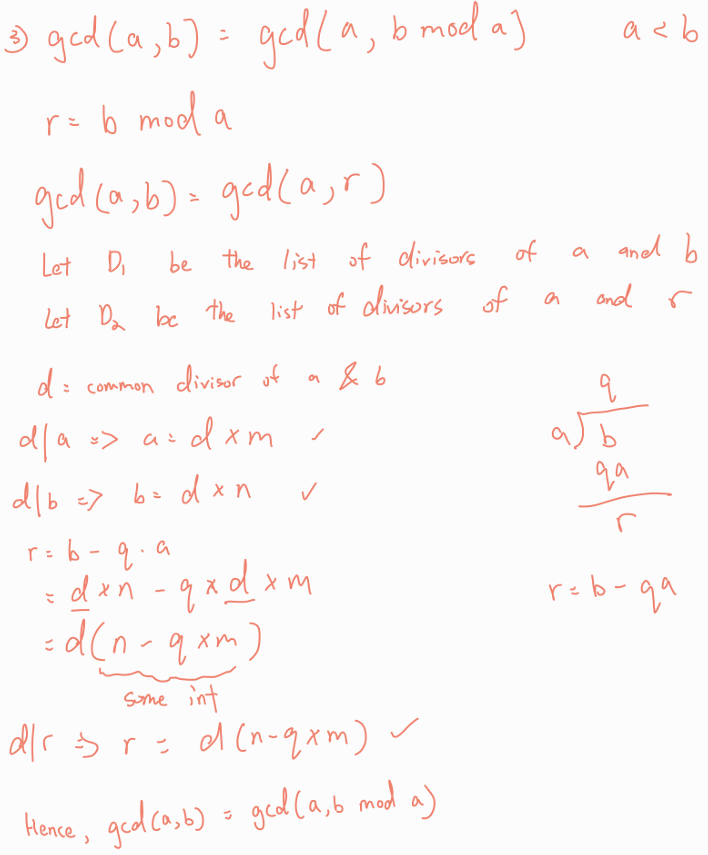 ③ gcd(a,b) = gcd(a, b mod a) a < b
r = b mod a
gcd(a,b) = gcd(a,r)
Let D₁ be the list of divisors of a and b
Let D₂ be the list of divisors of a and r
d = common divisor of a & b
d|a => a = d × m ✓
d|b => b = d × n ✓
r = b - q . a
= d × n - q × d × m
= d(n - q × m)
some int
d|r => r = d(n-q×m) ✓
Hence, gcd(a,b) = gcd(a,b mod a)
q
a) b
qa
r
r = b - qa